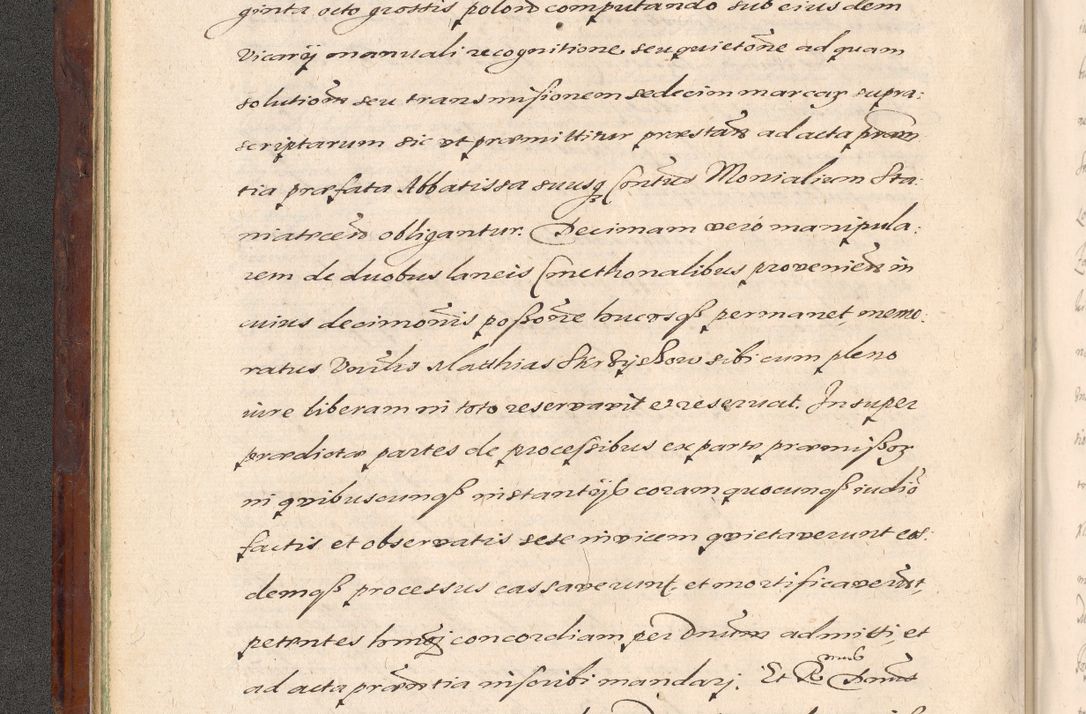 ginta octo grossis polon computando sub eius dem
Vicarij manuali recognitione seu quietone ad quam
solutiom seu transmissionem sedecim marcar supra:
scriptarum sic ut præmittitur præstan ad acta præn
tia præfata Abbatissa suusq Contus Monialium Sta:
niatecen obligantur. Decimam vero manipula:
rem de duobus laneis Cmethonalibus provenien in
cuius decimonis possone hucusq permanet, memo:
ratus Matthias sibi cum pleno
iure liberam in toto reservavit et reservat. Insuper
prædictæ partes de processibus ex parte præmissor
in quibuscunq instantijs coram quocunq iudio
factis et observatis sese invicem quietaverunt eos:
demq processus cassaverunt, et mortificaverunt,
petentes hmoj concordiam per Dnum admitti, et
ad acta præntia inscribi mandarj. Et R Dnus